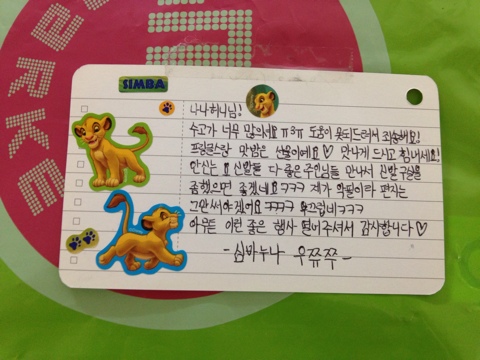 SIMBA
나나허니님!
수고가 너무 많으세요 ㅠ3ㅠ 도움이 못되드려서 죄송해요!
프링글스랑 맛밤은 선물이에요♡ 맛나게 드시고 힘내세요!
안신는 요 신발들 다 좋은 주인님들 만나서 신발 구실을
좀했으면 좋겠네요ㅋㅋㅋ 제가 악필이라 편지는
그만써야겠어요 ㅋㅋㅋ 부끄럽네ㅋㅋㅋ
아무튼 이런 좋은 행사 열어주셔서 감사합니다♡
- 심바누나 우쮸쮸 -
ARKE